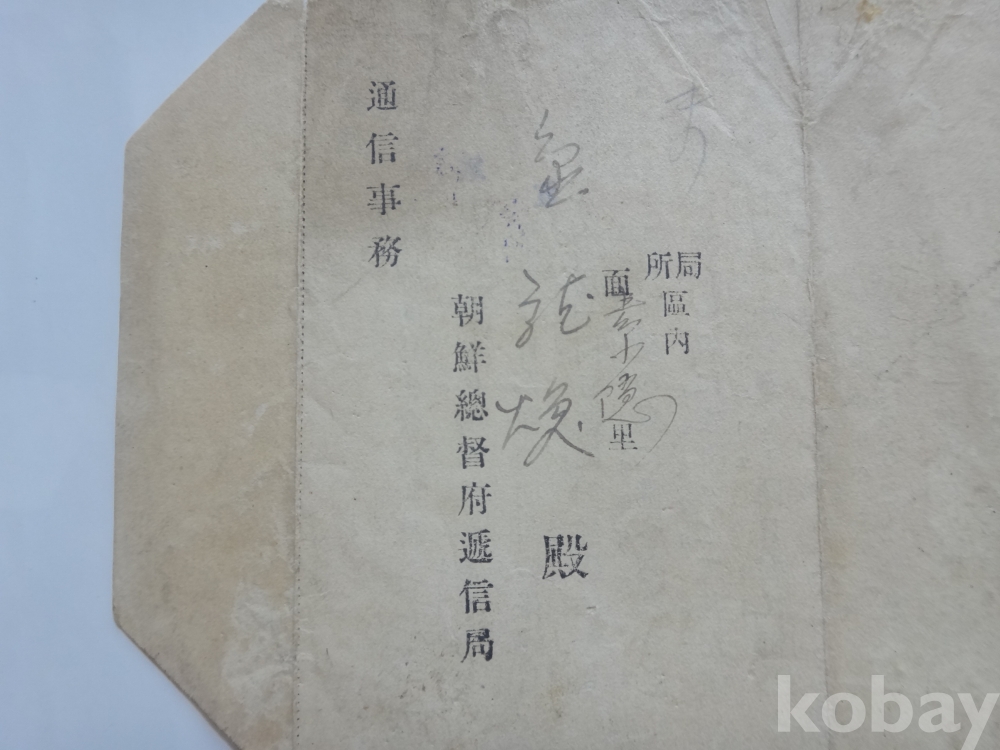 局所區內
面 小隱里
金 煥 殿
朝鮮總督府遞信局
通信事務
kobay